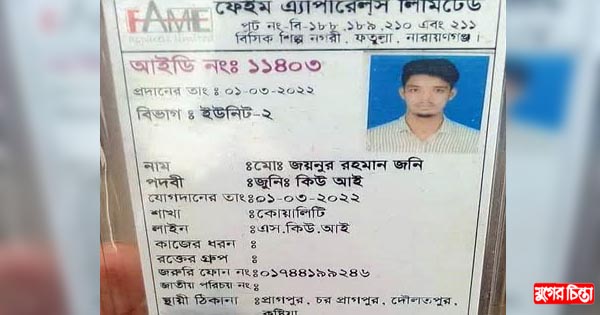 FAME
Apparels Limited
ফেইম এ্যাপারেলস লিমিটেড
প্লট নং-বি-১৮৮,১৮৯,২১০ এবং ২১১
বিসিক শিল্প নগরী, ফতুল্লা, নারায়ণগঞ্জ।
আইডি নংঃ ১১৪০৩
প্রদানের তাং ঃ ০১-০৩-২০২২
বিভাগ ঃ ইউনিট-২
নাম ঃমোঃ জয়নুর রহমান জনি
পদবী ঃজুনিঃ কিউ আই
যোগদানের তাংঃ০১-০৩-২০২২
শাখা ঃকোয়ালিটি
লাইন ঃএস.কিউ.আই
কাজের ধরন ঃ
রক্তের গ্রুপ ঃ
জরুরি ফোন নংঃ০১৭৪৪১৯৯২৪৬
জাতীয় পরিচয় নংঃ
স্থায়ী ঠিকানা ঃপ্রাগপুর, চর প্রাগপুর, দৌলতপুর,
কুষ্টিয়া
যুগের চিন্তা